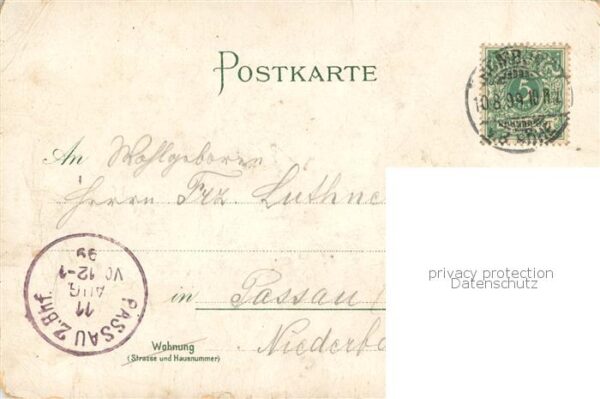 POSTKARTE
5
10.8.99.
An Wohlgeboren
Herrn Frz. Luthne
in Passau
Niederb
Wohnung
(Strasse und Hausnummer)
PASSAU 2.Bhf.
11
AUG
VO 12-1
99
privacy protection
Datenschutz